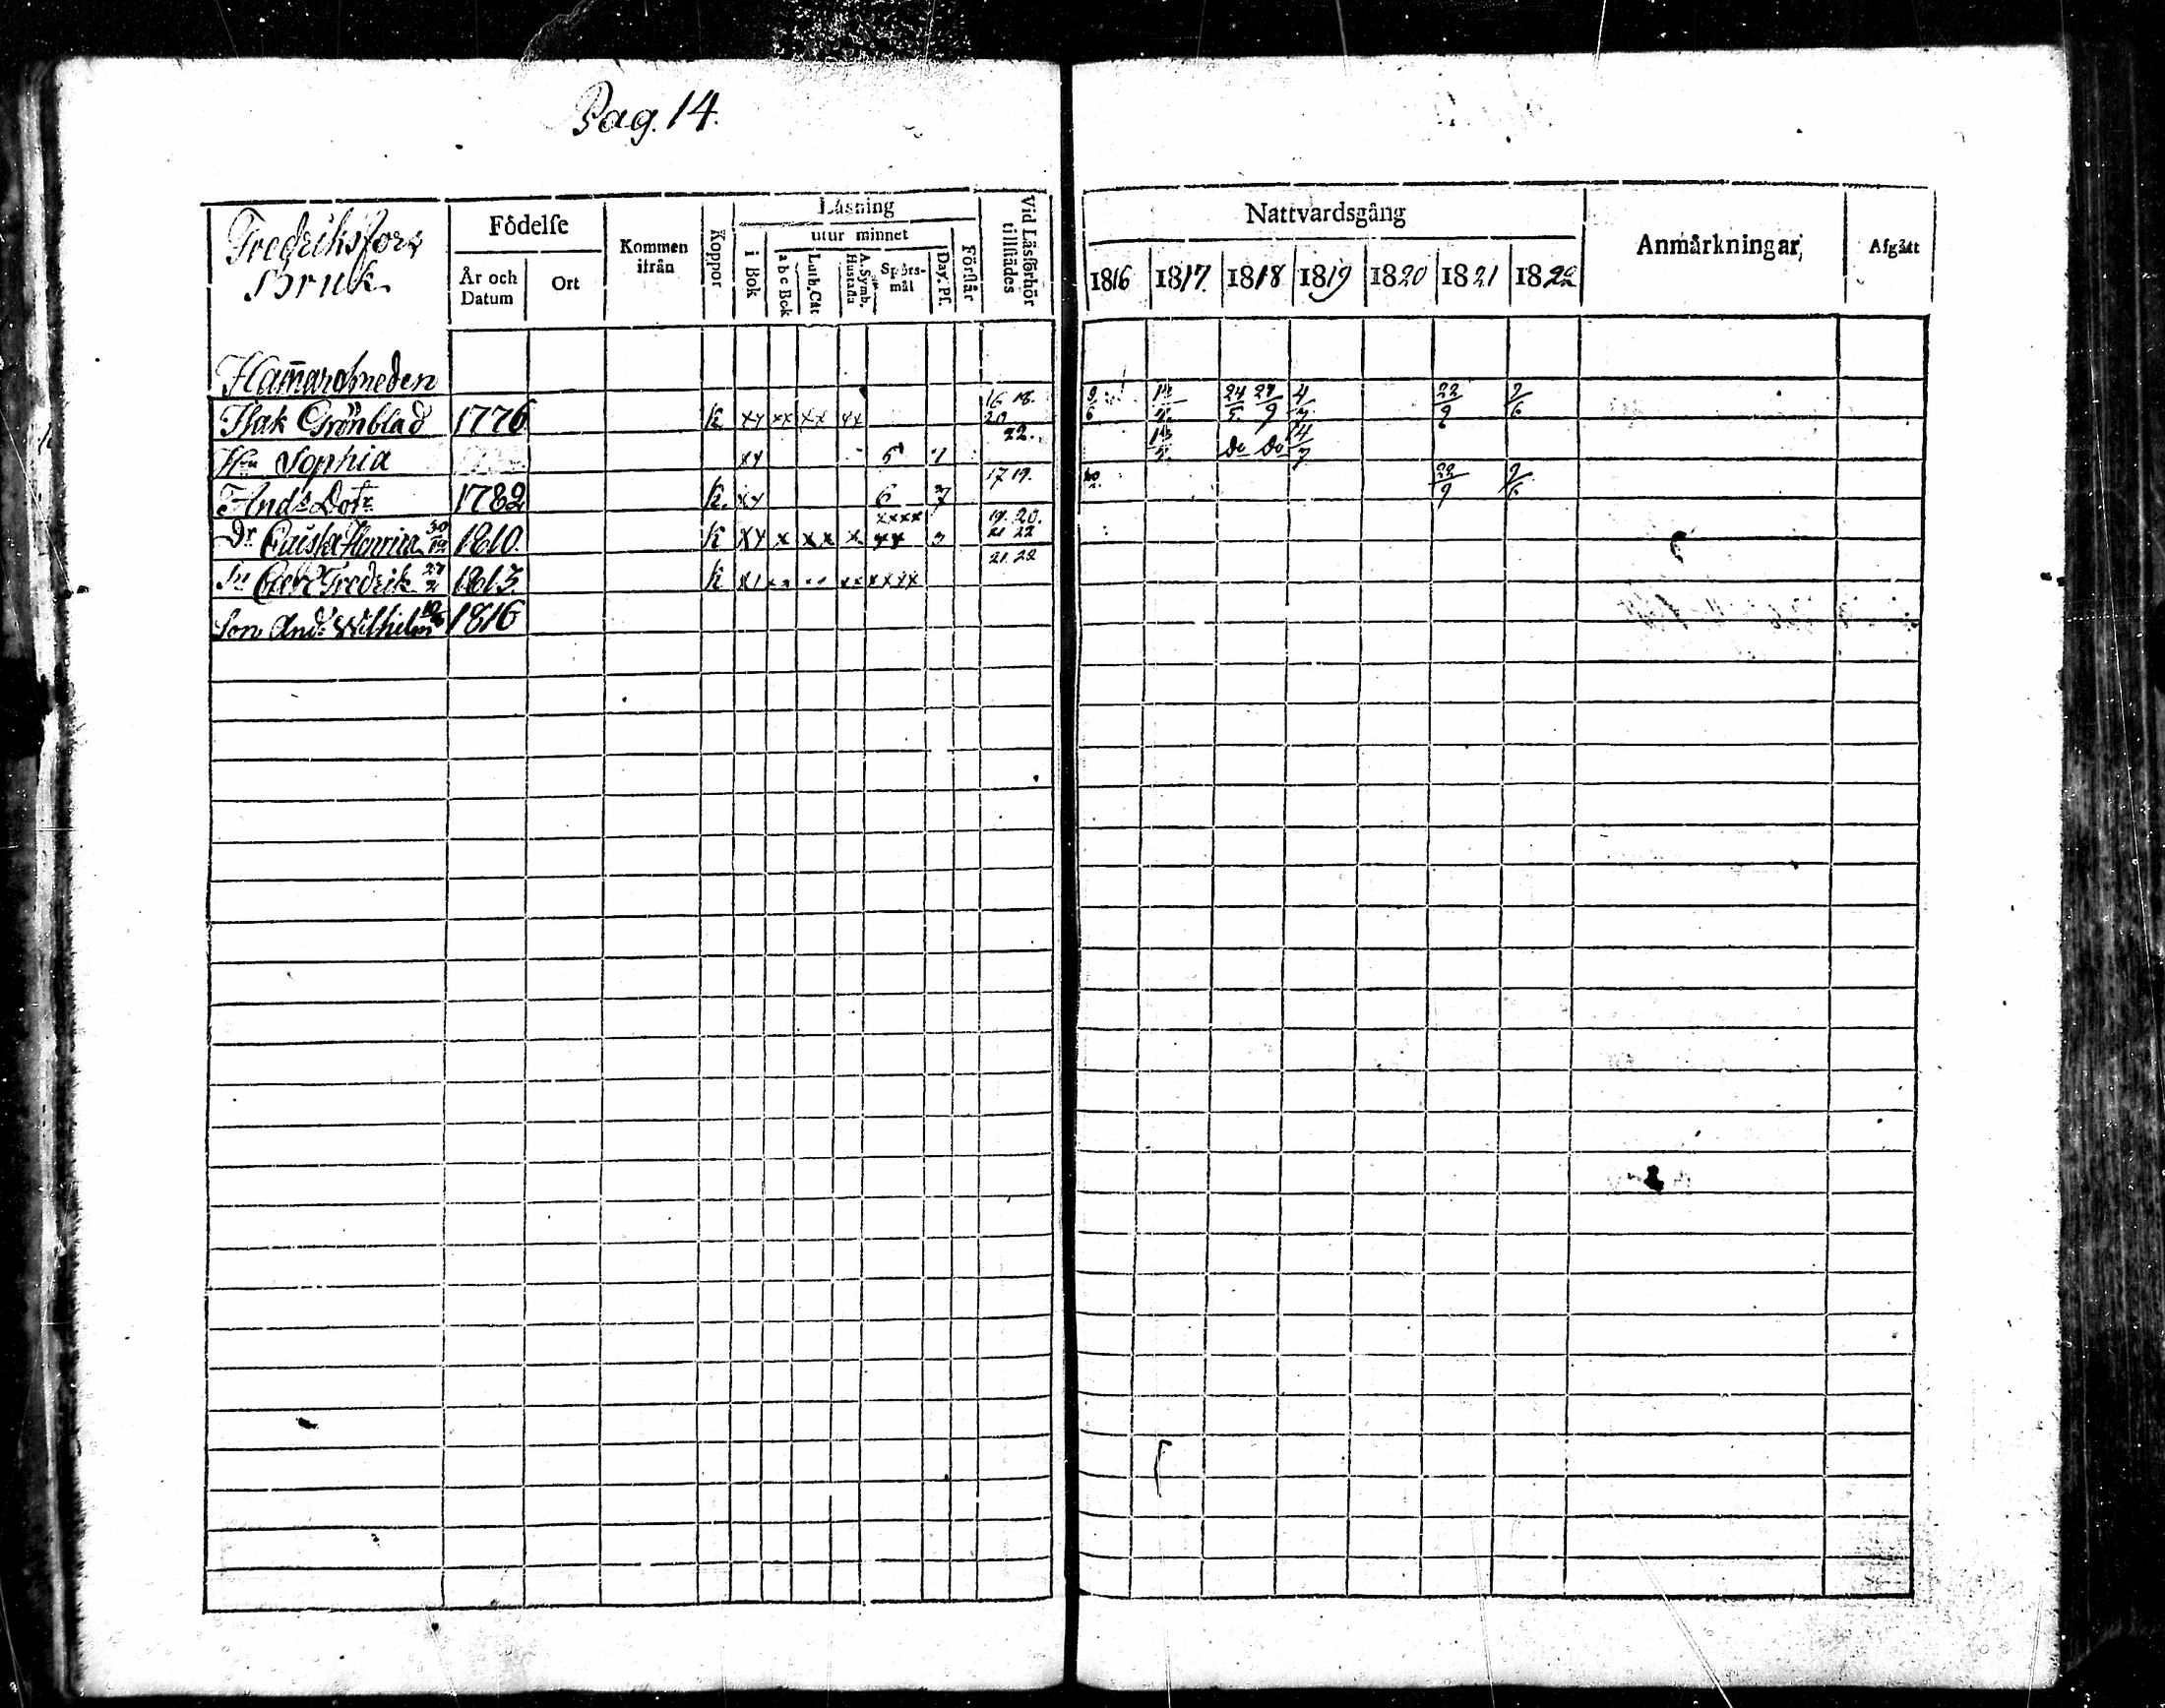 Pag. 14.
Fredriksfors
Bruk.
Födelse
År och
Datum
Ort
Kommen
ifrån
Koppor
Läsning
i Bok
utur minnet
a b c Bok
Luth. Cat
A. Symb.
Hustafla
Spörs-
mål
Dav. Pf.
Förstår
Vid Läsförhör
tillstädes
Nattvardsgång
1816 1817. 1818 1819 1820 1821 1822
Anmärkningar
Afgått
Ham̄arsmeden
Isak Grönblad 1776 k xx xx xx xx 16 18. 20 22. 9/6 24/5 27/9 4/7 22/9 2/6
Hu Sophia xx 5 1 do do 4/7
And:s Dotr 1782 k. xx 6 7 17 19. 22/9 2/6
Dr Caisa Henrica 30/12 1810. k xx x xx x xxxx xx 19. 20. 21 22
Sn Carl Fredrik 27/2 1813. k xx xxxx 21. 22
Son And:s Wilhelm 1816